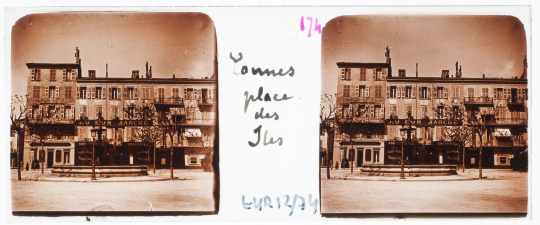 174
Cannes
place
des
Iles
EUR12/74